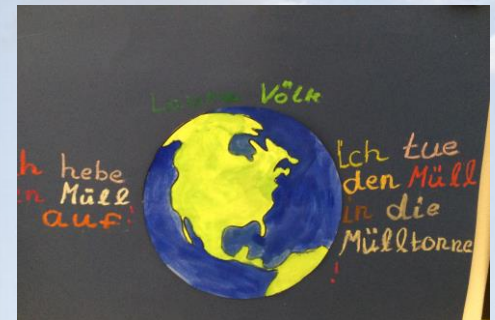 Völk
h hebe
n Müll
auf!
Ich tue
den Müll
in die
Mülltonne
!